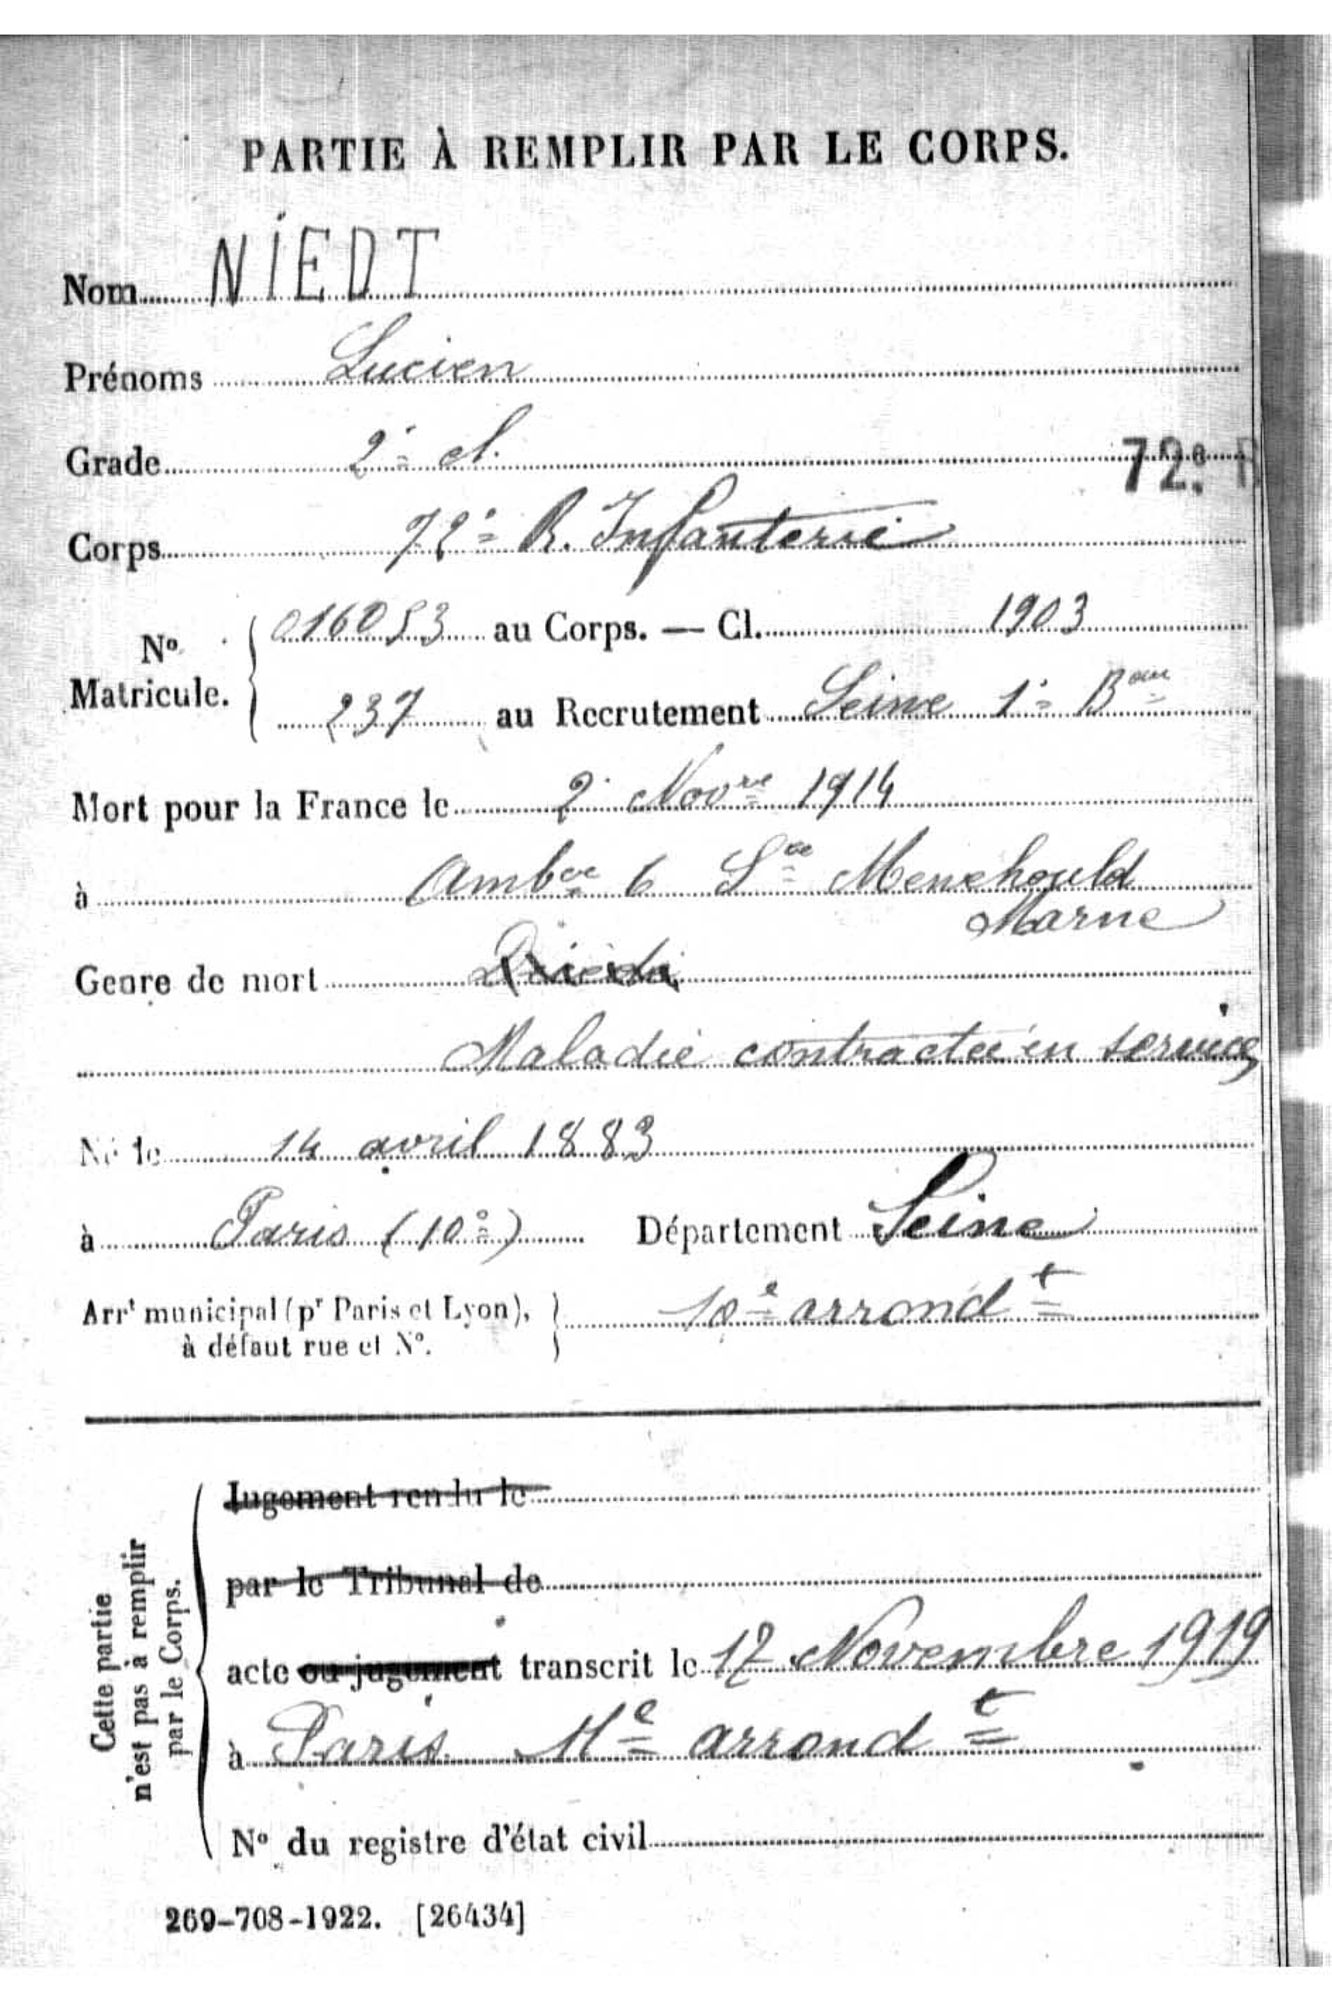 PARTIE À REMPLIR PAR LE CORPS.
Nom NIEDT
Prénoms Lucien
Grade 2e cl.
72e R
Corps 72e R. Infanterie
No Matricule. 016053 au Corps. — Cl. 1903
237 au Recrutement Seine 1er Beau
Mort pour la France le 2 Novre 1914
à Ambce 6 Ste Menehould
Marne
Genre de mort
Maladie contractée en service
Né le 14 avril 1883
à Paris (10e) Département Seine
Arrt municipal (pr Paris et Lyon), 10e arrondt
à défaut rue et No.
Cette partie
n'est pas à remplir
par le Corps.
Jugement rendu le
par le Tribunal de
acte ou jugement transcrit le 17 Novembre 1919
à Paris 11e arrondt
No du registre d'état civil
269-708-1922. [26434]